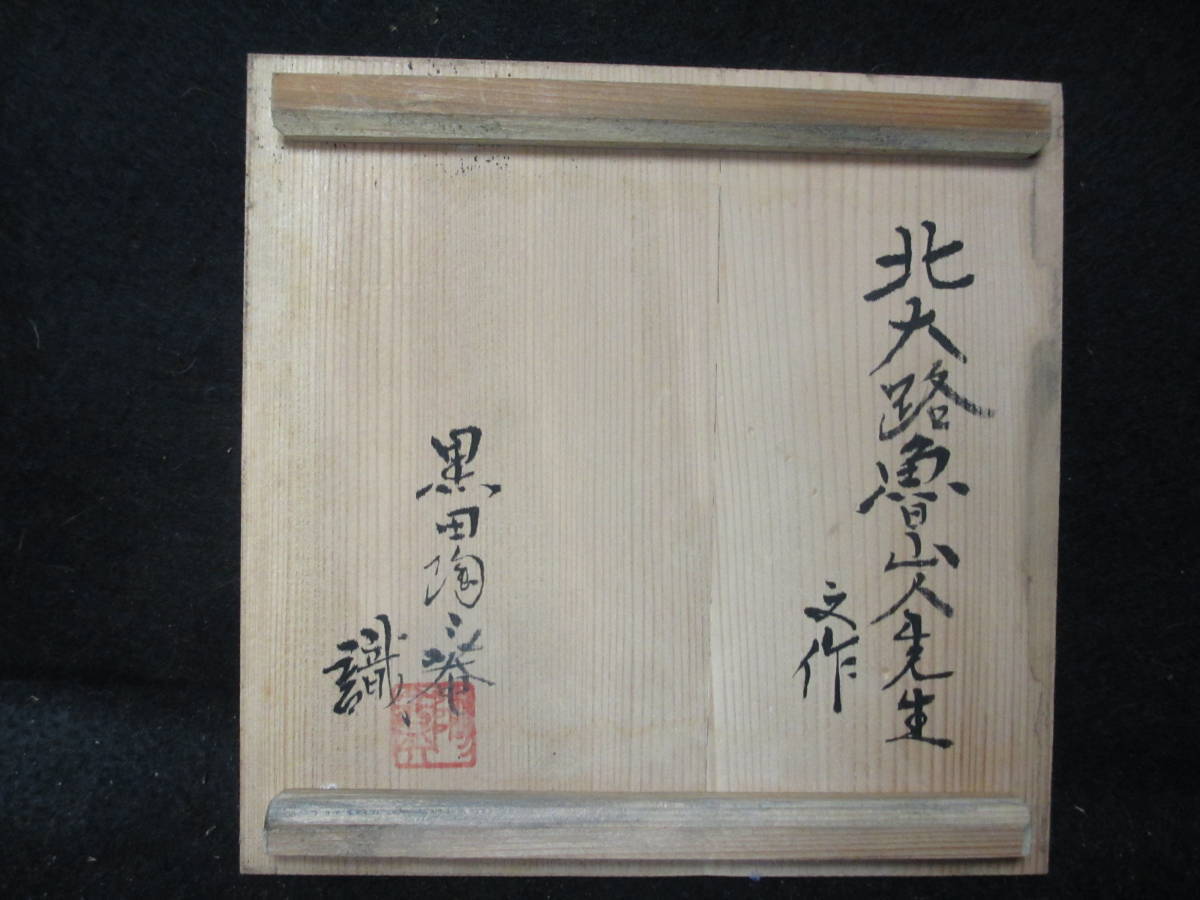 北大路魯山人先生
文作
黒田陶々菴
識